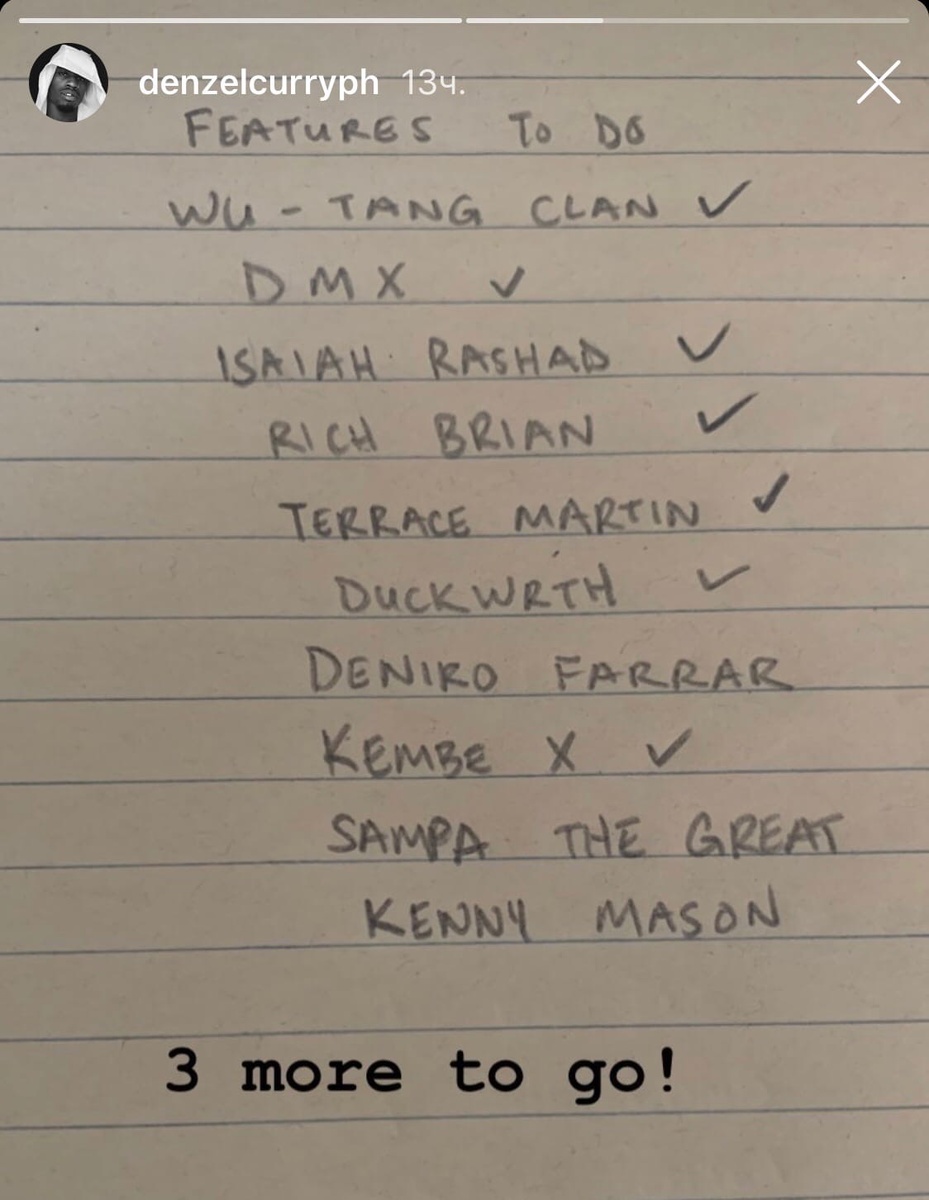 denzelcurryph 13ч.
FEATURES TO DO
WU-TANG CLAN ✓
DMX ✓
ISAIAH RASHAD ✓
RICH BRIAN ✓
TERRACE MARTIN ✓
DUCKWRTH ✓
DENIRO FARRAR
KEMBE X ✓
SAMPA THE GREAT
KENNY MASON
3 more to go!